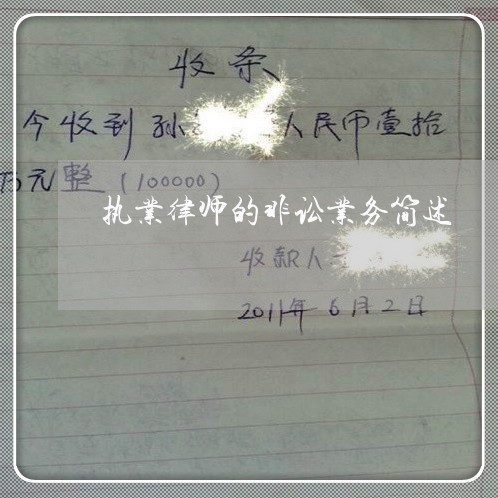 收条
今收到孙 人民币壹拾
万元整(100000)
执業律师的非讼業务简述
收款人
2011年6月2日